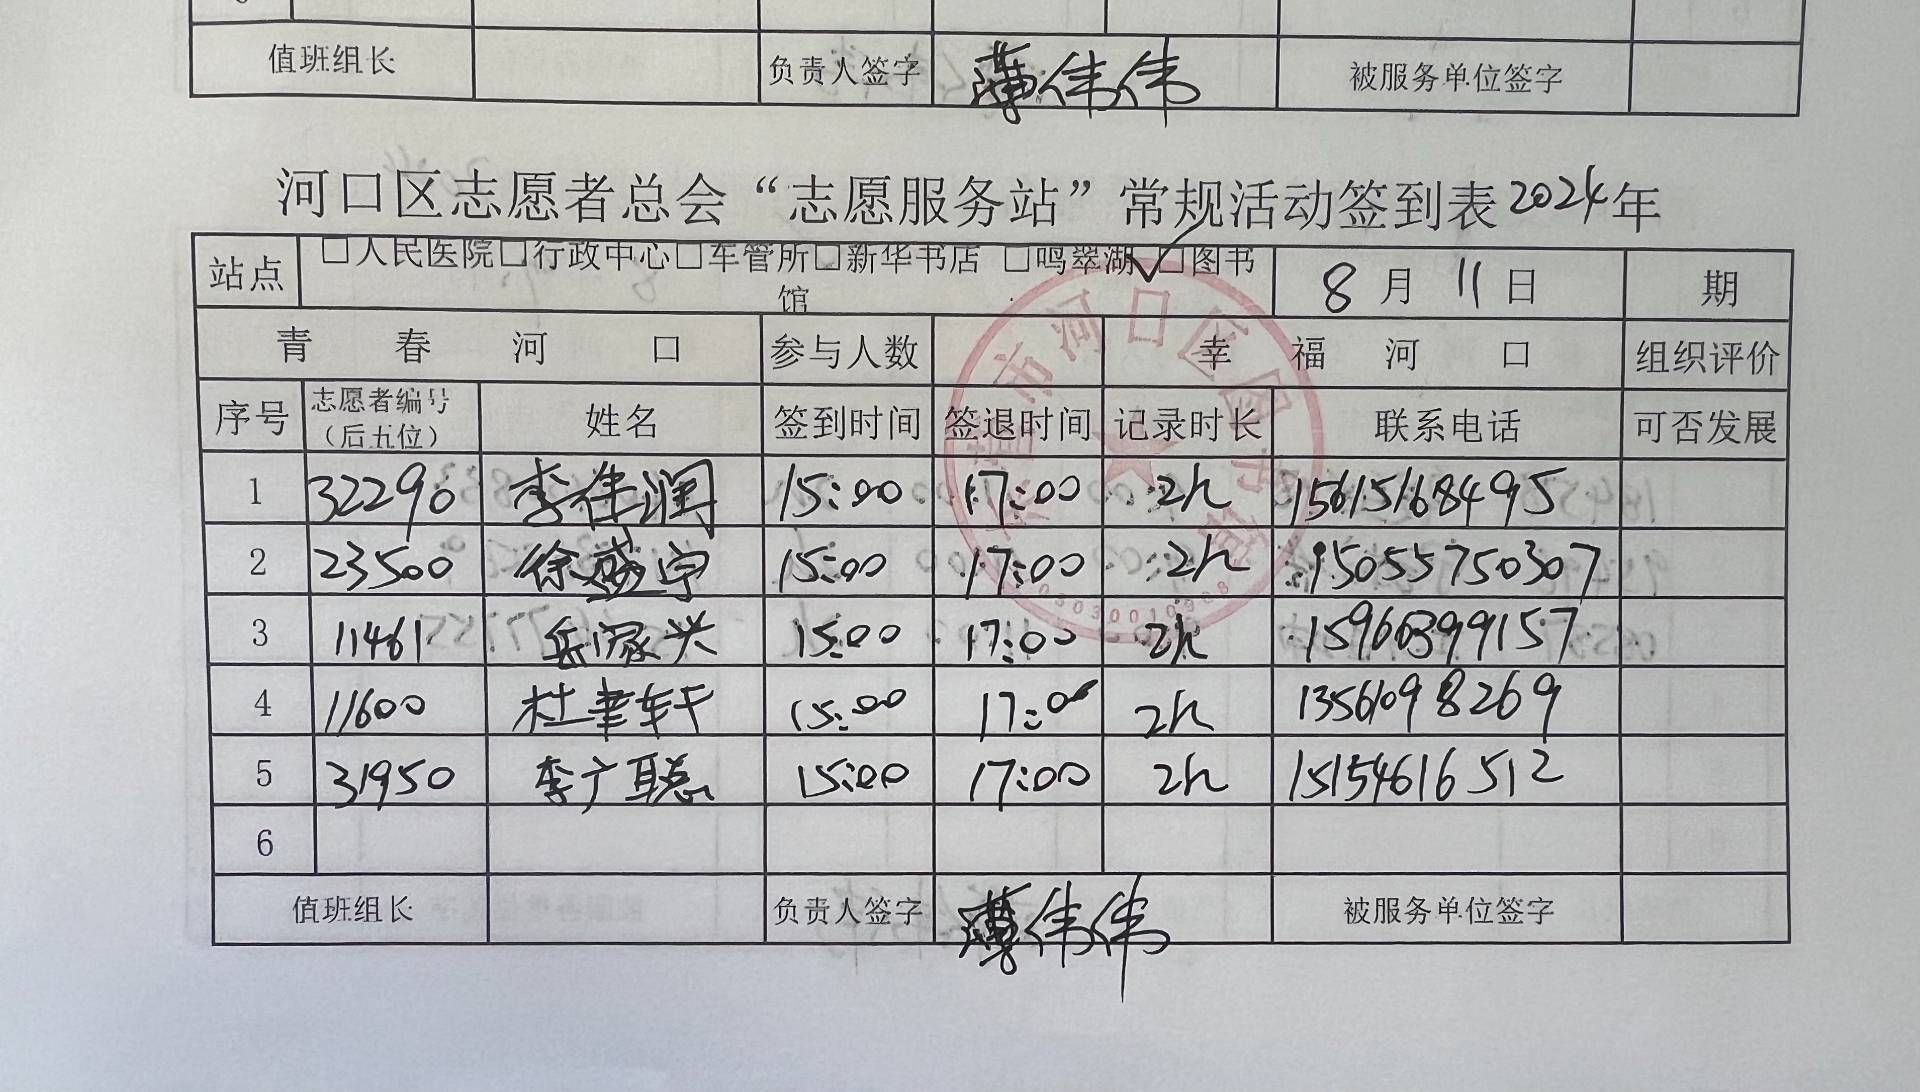 值班组长 负责人签字 薄伟伟 被服务单位签字
河口区志愿者总会“志愿服务站”常规活动签到表2024年
站点 □人民医院□行政中心□车管所□新华书店 □鸣翠湖□图书馆 8月11日 期
青春河口 参与人数 幸福河口 组织评价
序号 志愿者编号（后五位） 姓名 签到时间 签退时间 记录时长 联系电话 可否发展
1 32290 李佳润 15:00 17:00 2h 15615168495
2 23500 徐盛宁 15:00 17:00 2h 15055750307
3 11461 岳家兴 15:00 17:00 2h 15966399157
4 11600 杜聿轩 15:00 17:00 2h 13561098269
5 31950 李广聪 15:00 17:00 2h 15154616512
6
值班组长 负责人签字 薄伟伟 被服务单位签字
市河口区图书馆